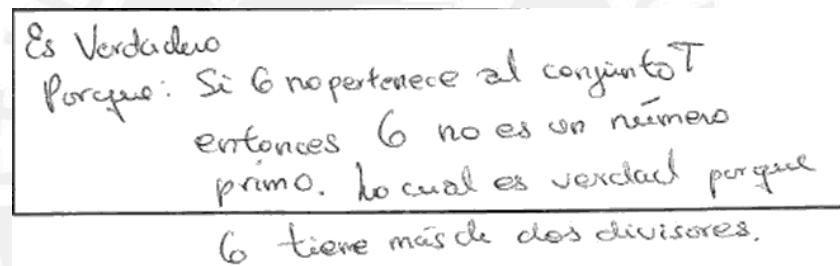 Es Verdadero
Porque: Si 6 no pertenece al conjunto T
entonces 6 no es un número
primo. Lo cual es verdad porque
6 tiene más de dos divisores.